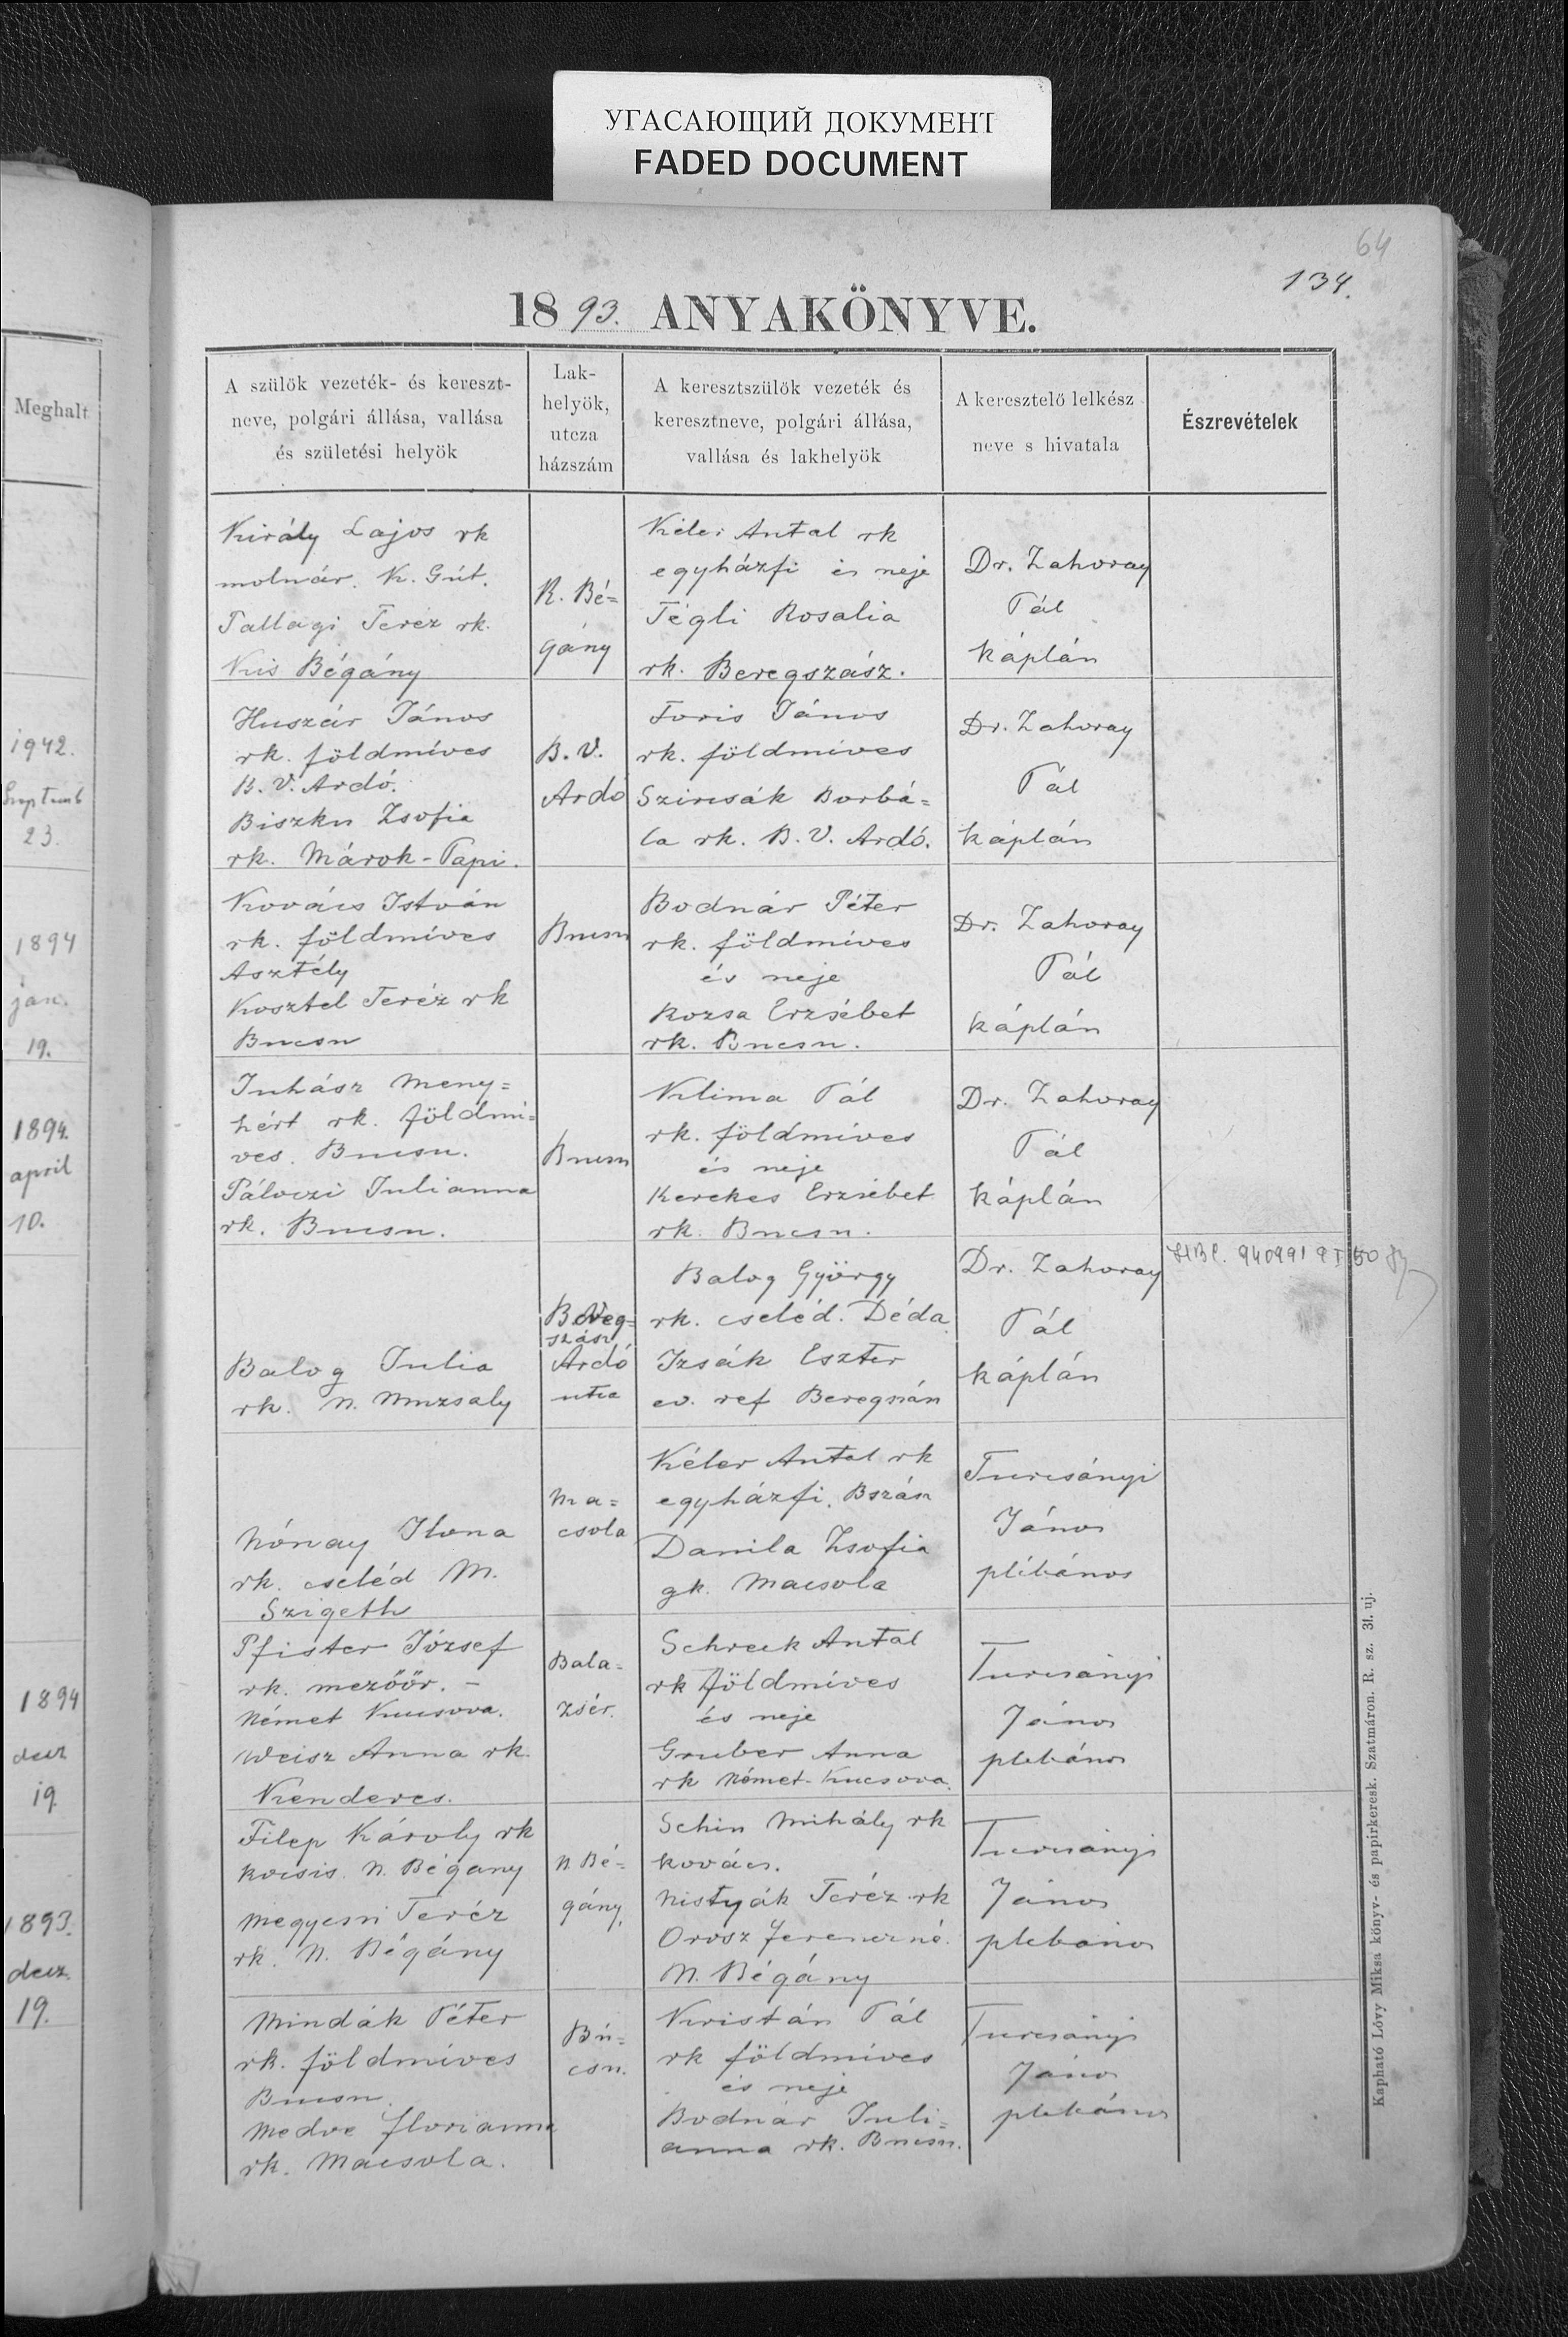 УГАСАЮЩИЙ ДОКУМЕНТ
FADED DOCUMENT
64
134.
1893. ANYAKÖNYVE.
Meghalt
1942.
23.
1894
jan.
19.
1894.
april
10.
1894
decz
19
1893.
decz.
19.
A szülök vezeték- és kereszt-
neve, polgári állása, vallása
és születési helyök
Lak-
helyök,
utcza
házszám
A keresztszülök vezeték és
keresztneve, polgári állása,
vallása és lakhelyök
A keresztelő lelkész
neve s hivatala
Észrevételek
Király Lajos rk
molnár. K. Gút.
Pallagi Teréz rk.
Kis Bégány
K. Bé=
gány
Kéler Antal rk
egyházfi és neje
Tégli Rosalia
rk. Beregszász.
Dr. Zahoray
Pál
káplán
Huszár János
rk. földmíves
B. V. Ardó.
Biszku Zsofia
rk. Márok-Papi.
B. V.
Ardó
Foris János
rk. földmíves
Szircsák Borbá=
la rk. B. V. Ardó.
Dr. Zahoray
Pál
káplán
Kovács István
rk. földmíves
Asztély
Kosztel Teréz rk
Bucsu
Bucsu
Bodnár Péter
rk. földmíves
és neje
Rozsa Erzsébet
rk. Bucsu.
Dr. Zahoray
Pál
káplán
Juhász Meny=
hért rk. földmi=
ves. Bucsu.
Pálóczi Julianna
rk. Bucsu.
Bucsu
Klima Pál
rk. földmíves
és neje
Kerekes Erzsébet
rk. Bucsu.
Dr. Zahoray
Pál
káplán
Balog Julia
rk. N. Muzsaly
Bereg=
szász
Ardó
utca
Balog György
rk. cseléd. Déda
Izsák Eszter
ev. ref Beregszász
Dr. Zahoray
Pál
káplán
940991
50
Nónay Ilona
rk. cseléd M.
Szigeth
Ma=
csola
Kéler Antal rk
egyházfi. Bszász
Danila Zsofia
gk. Macsola
Turcsányi
János
plébános
Pfister József
rk. mezőőr. -
Német Kucsova.
Weisz Anna rk.
Kenderes.
Bala=
zsér.
Schreck Antal
rk földmíves
és neje
Gruber Anna
rk Német-Kucsova.
Turcsányi
János
plebános
Filep Károly rk
kocsis. N. Bégany
Megyesi Teréz
rk. N. Bégány
N. Bé=
gány,
Schin Mihály rk
kovács.
Nistyák Teréz rk
Orosz Ferenczné.
N. Bégány
Turcsányi
János
plebános
Mindák Péter
rk. földmíves
Bucsu.
Medve Florianna
rk. Macsola.
Bú=
csu.
Kristán Pál
rk földmíves
és neje
Bodnár Juli=
anna rk. Bucsu.
Turcsányi
János
plebános
Kapható Lövy Miksa könyv- és papirkeresk. Szatmáron. R. sz. 31. uj.